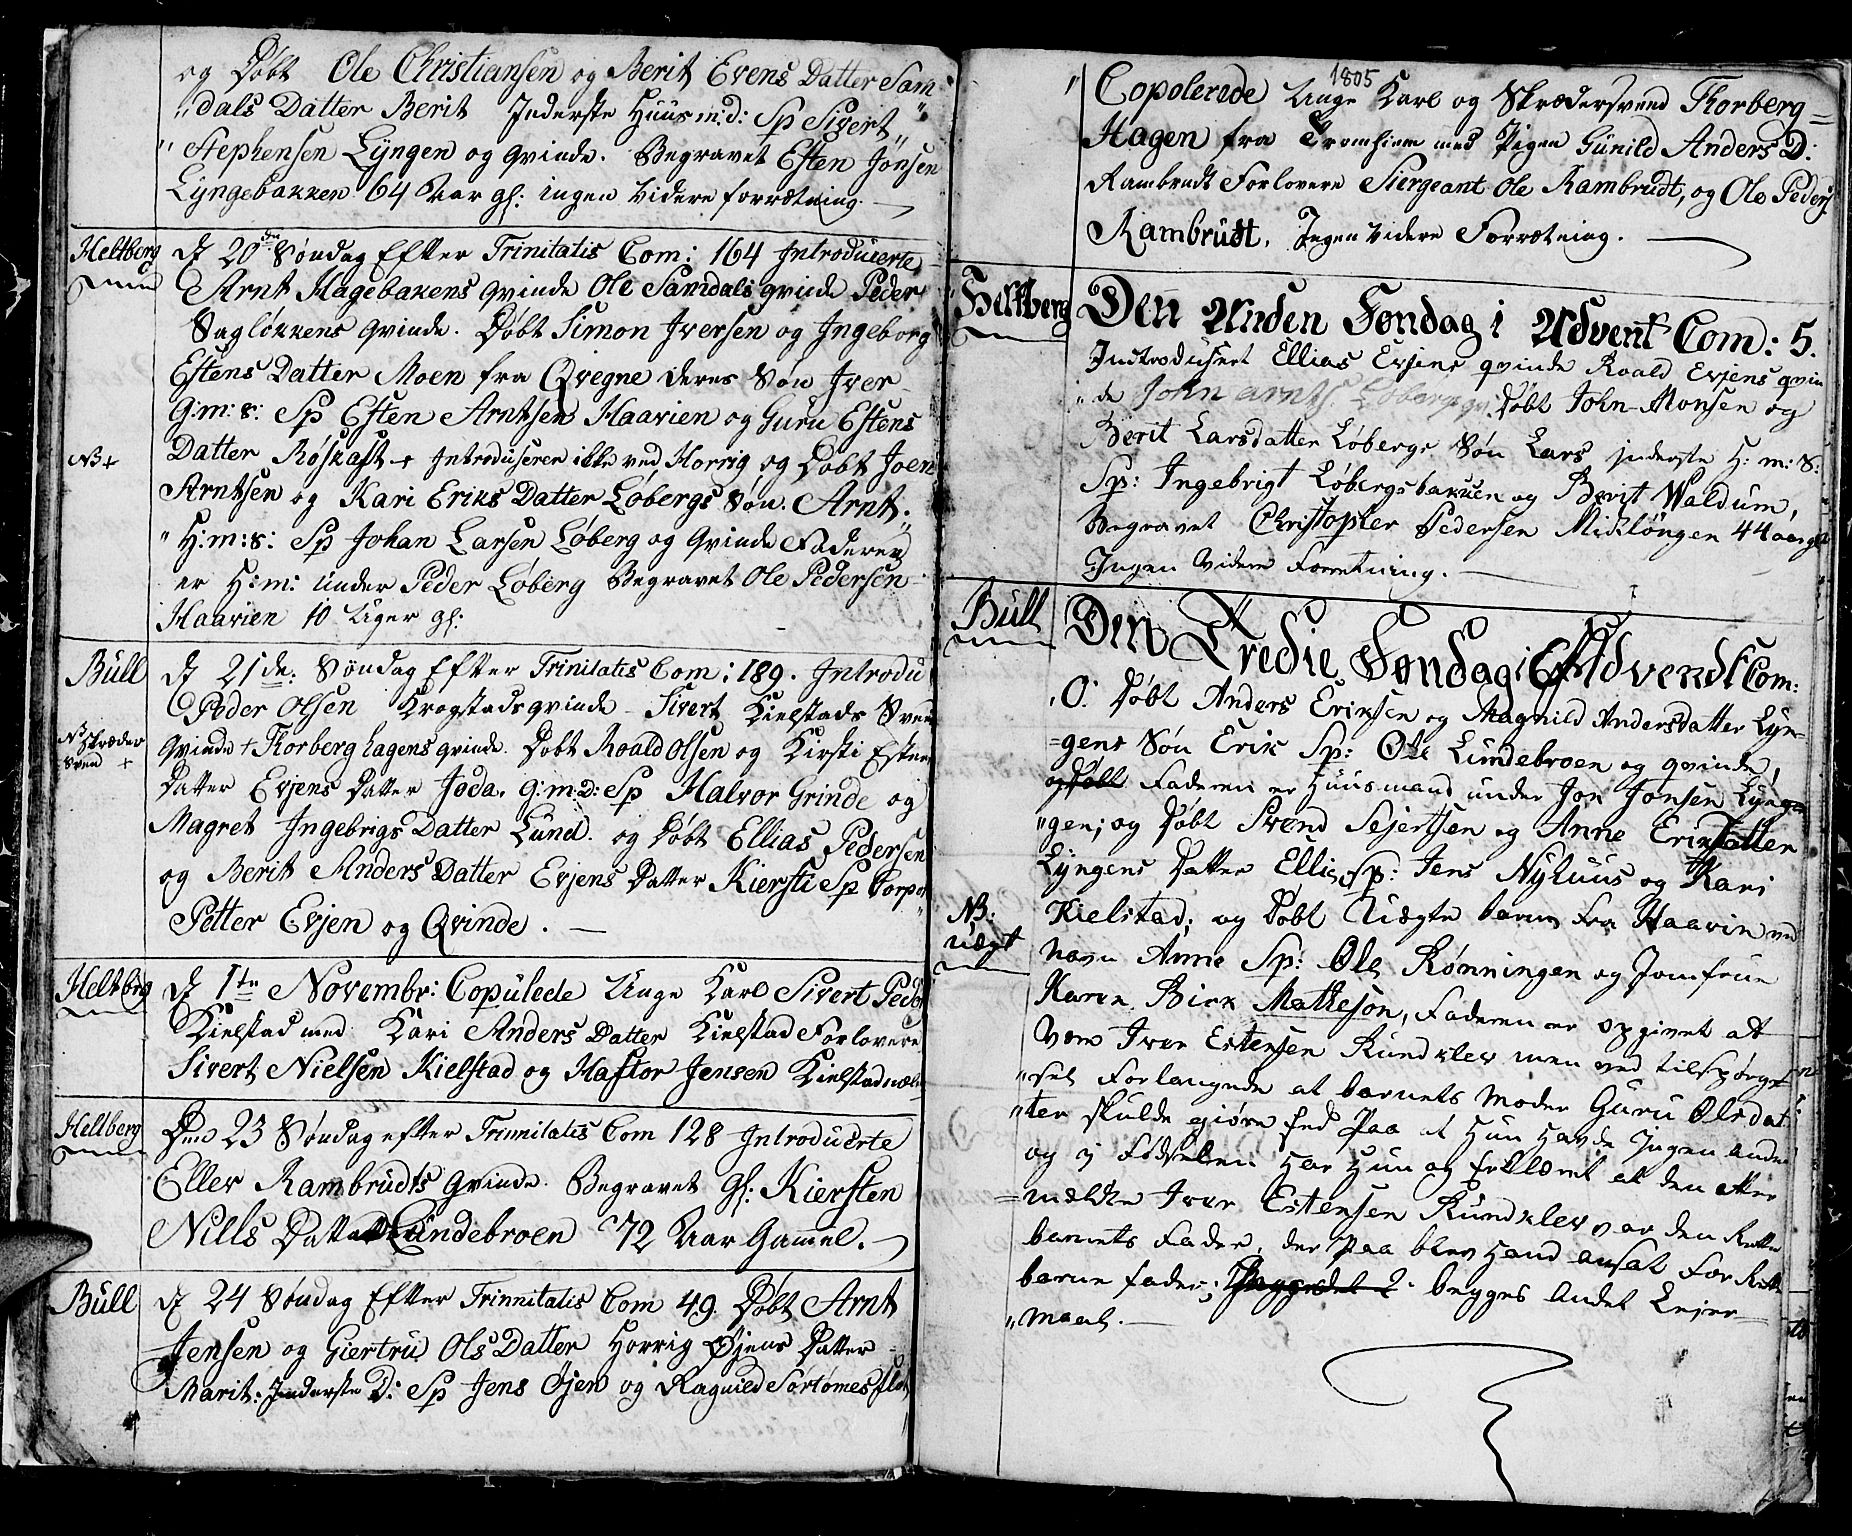 og Døbt Ole Christiansen og Berit Evens Datter Sam
"dals Datter Berit Inderste Huusm: d: Sp Sivert "
" Stephensen Lÿngen og Qvinde. Begravet Esten Jonsen
Lÿngebakken 64 Aar gl: ingen videre forrætning.
Heltberg
d 20de Søndag Efter Trinitatis Com: 164 Introduerte
Arnt Hagebakens Qvinde Ole Samdals Qvinde Peder
Sagløkkens Qvinde. Døbt Simon Iversen og Ingeborg
Estens Datter Moen fra Qvegne deres Søn Iver
G: m: s: Sp Esten Arntsen Haarien og Guru Estens
NB +
Datter Røskaft + Introduserer ikke ved Horrig og Døbt Joen
Arntsen og Kari Eriks Datter Løbergs Søn. Arnt.
" H: m: s: Sp Johan Larsen Løberg og Qvinde Faderen
er H: m: under Peder Løberg Begravet Ole Pedersen
Haarien 10 Uger gl:
Büll
d 21de: Søndag Efter Trinitatis Com: 189. Introdu
Peder Olsen Krogstads qvinde Sivert Kielstads Sven
NB Skræder
Sven +
Qvinde + Thorberg hagens qvinde. Døbt Roald Olsen og Kirsti Esten
Datter Evjens Datter Joda. G: m: D: Sp Halvor Grinde og
Magret Ingebrigs Datter Lund. og Døbt Ellias Pedersen
og Berit Anders Datter Evjens Datter Kiersti Sp Corpor
Petter Evjen og Qvinde.
Heltberg
d 1te Novembr: Copülede Unge Karl Sivert Peder
Kielstad med Kari Anders Datter Kielstad Forlovere
Sivert Nielsen Kielstad og Hastor Jensen Kielstad
Heltberg
Den 23 Søndag efter Trinnitatis Com 128 Introduerte
Eller Rambrudts Qvinde. Begravet gl: Kiersten
Nills Datter Lündebroen 72 Aar Gammel.
Büll
d 24 Søndag Efter Trinnitatis Com 49. Døbt Arnt
Jensen og Giertru Ols Datter Horrig Øjens Datter
Marit: Inderste D: Sp Jens Øjen og Ragnild Sortømes
1805
" Copolerede Unge Karl og Skrædersvend Thorberg
Hagen fra Tromhiem med Pigen Günild Anders D:
Rambrudt Forlovere Siergeant Ole Rambrudt, og Ole Peders
Rambrüdt. Ingen videre Forrætning.
Heltberg
Den Anden Søndag i Advent Com: 5.
Introdusert Ellias Evjens qvinde Roald Evjens qvin
"de John arnts. Løbergs qv. Døbt John Monsen og
Berit Larsdatter Løbergs Søn Lars inderste H: m: S:
Sp: Ingebrigt Løbergsbakken og Berit Waldum,
Begravet Christopher Pedersen Midløngen 44 aar gl
Ingen Videre Forretning.
Büll
Den Tredie Søndag i Advendt Com:
0. Døbt Anders Eriksen og Magnild Andersdatter Lÿn=
=gens Søn Erik Sp: Ole Lundebroen og qvinde,
og Døbt Faderen er Huusmand under Jon Jonsen Lÿng
"gen; og Døbt Svend Sejertsen og Anne Eriksdatter
Lÿngens Datter Ellis, Sp: Jens Nÿhuus og Kari
NB:
Uægt
Kielstad; og Døbt Uægte barn fra Haarin ved
navn Anne Sp: Ole Rønningen og Jomfrue
Karen Birk Mathesøn, Faderen er opgivet at
være Iver Estensen Rundklev men ved tilspørgt
"sel Forlangende at barnets Moder Guru Olsdat
"ter skulde giøre Eed paa at Hun Havde Ingen anden
og i Fødselen Har Hun og Erklæret at den Mer
=meldte Iver Estensen Rundklev var den Rette
barnets Fader, der paa blev Hand ansat For Rette
barne fader; begges andet Leier=
"maal.